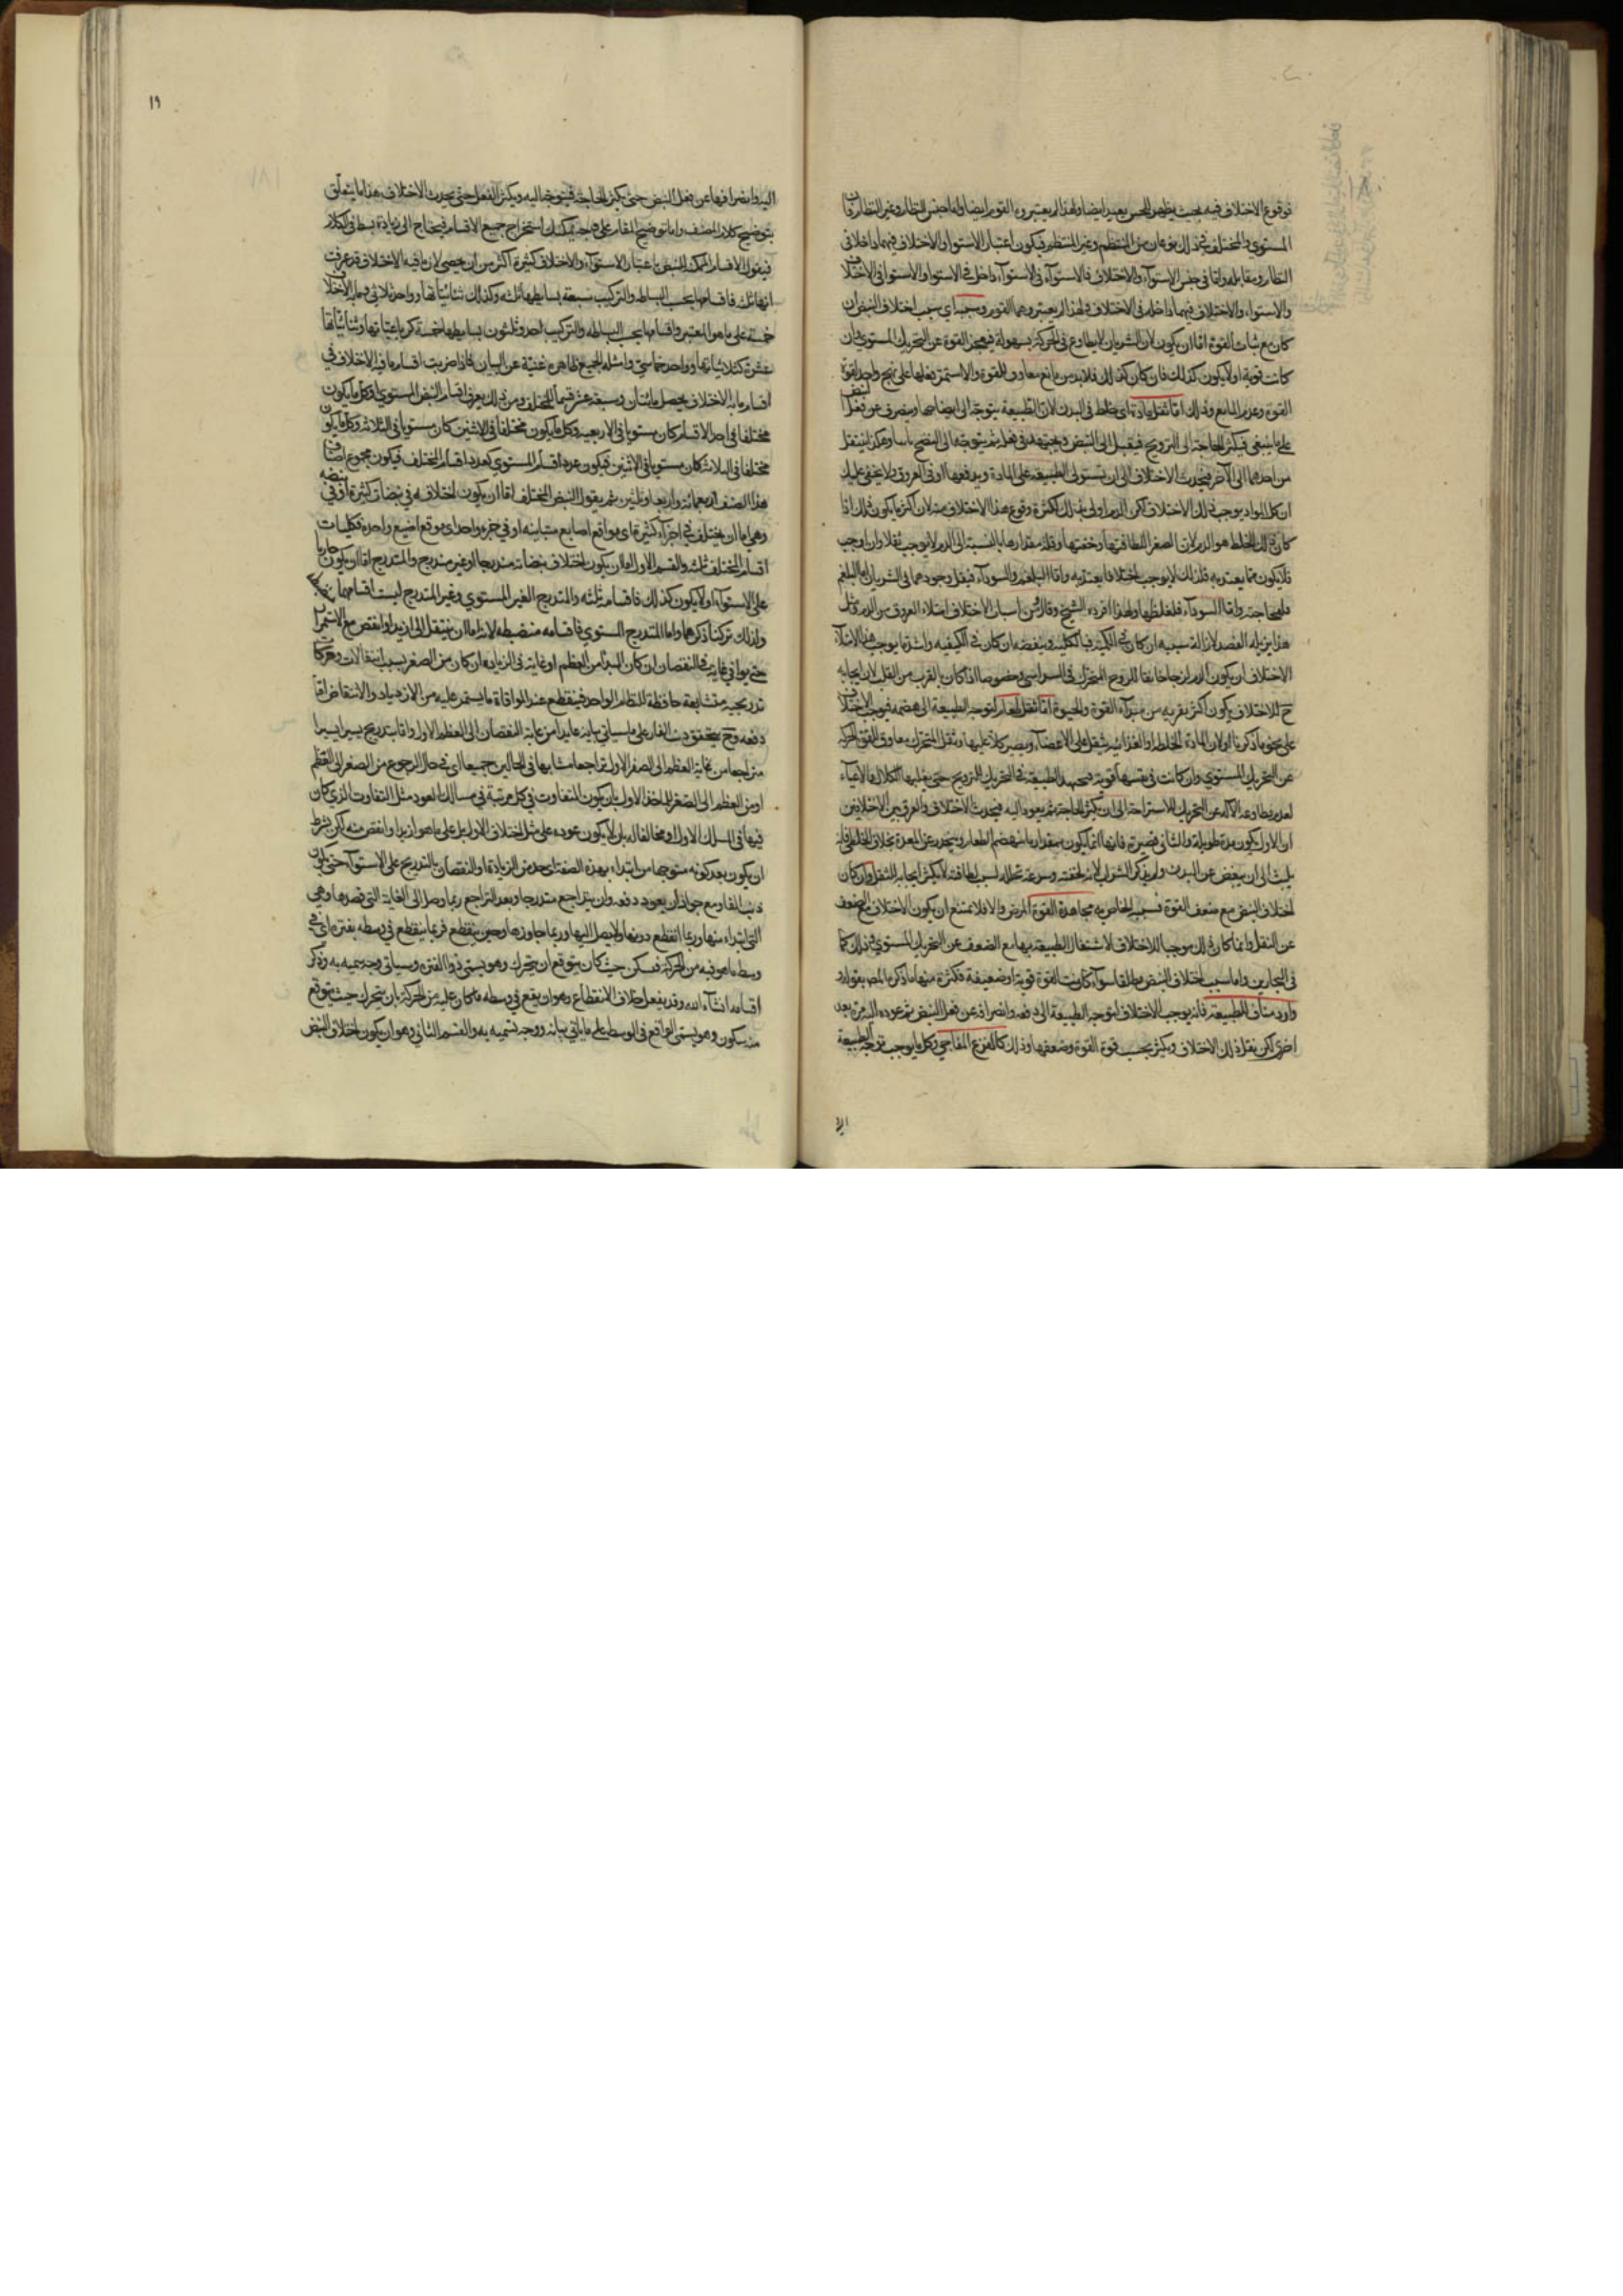 فوقوع الاختلاف فيه بحيث يظهر للحس بعيد ايضا ولهذا لم يعتبره القوم ايضا واما جنس النظام وغير النظام فان
المستوي والمختلف في ذلك نوعان من المنتظم وغير المنتظم فيكون اعتبار الاستواء والاختلاف فيهما داخلا في
النظام ومقابله واما في جنس الاستواء والاختلاف فالاستواء في الاستواء داخل في الاستواء والاستواء في الاختلاف
والاستواء والاختلاف فيهما داخل في الاختلاف فلهذا لم يعتبرهما القوم وسببه اي سبب اختلاف النبض ان
كان مع ثبات القوة اما ان يكون لان الشريان لا يطاوع في الحركة بسهولة فيعجز القوة عن التحريك المستوي وان
كانت قوية او لا يكون كذلك فان كان كذلك فلابد من مانع معاوق للقوة والا استمر فعلها على نهج واحد لقوة
القوة وعدم المانع وذلك اما ثقل مادة اي خلط في البدن لان الطبيعة يتوجه الى انضاجها وينصرف عن فعل النبض
على ما ينبغي فيكثر الحاجة الى الترويح فيقبل الى النبض ويجتهد في فعله ثم يتوجه الى النضج ثانيا وهكذا ينتقل
من احدهما الى الآخر فيحدث الاختلاف الى ان تستولي الطبيعة على المادة ويدفعها او في العروق ولا يخفى عليك
ان كل المواد يوجب ذلك الاختلاف لكن الدم اولى بذلك لكثرة وقوع هذا الاختلاف منه لان اكثر ما يكون ذلك اذا
كان ذلك الخلط هو الدم لان الصفراء للطافتها وخفتها وقلة مقدارها بالنسبة الى الدم لا يوجب ثقلا وان اوجب
فلا يكون مما يعتد به فلذلك لا يوجب اختلافا يعتد به واما البلغم والسوداء فيقل وجودهما في الشريان اما البلغم
فلفجاجته واما السوداء فلغلظها ولهذا افرده الشيخ وقال من اسباب الاختلاف امتلاء العروق من الدم ومثل
هذا يزيله الفصد لازالة سببه ان كان في الكمية فبالكلية وببعضه ان كان في الكيفية واشد ما يوجب هذا الامتلاء
الاختلاف ان يكون الدم لزجا خانقا للروح المتحرك في الشرايين وخصوصا اذا كان بالقرب من القلب لان ايجابه
ح للاختلاف يكون اكثر بقربه من مبدأ القوة والحيوة اما ثقل طعام لتوجه الطبيعة الى هضمه فيوجب الاختلاف
على نحو ما ذكرنا اولا لان المادة الخلطية او الغذائية يثقل على الاعضاء ويصير كلا عليها وثقل المتحرك معاوق للقوة المحركة
عن التحريك المستوي وان كانت في نفسها قوية فيجهد الطبيعة في التحريك للترويح حتى يغلبها الكلال والاعياء
لعدم مطاوعة الآلة عن التحريك للاستراحة الى ان يكثر الحاجة ثم يعود اليه فيحدث الاختلاف والفرق بين الاختلافين
ان الاول يكون مدة طويلة والثاني قصيرة فانها انما يكون بمقدار ما ينهضم الطعام وينحدر عن المعدة بخلاف الخلط فانه
يلبث الى ان ينفض عن البدن ولم يذكر الشراب لانه لخفته وسرعة تحلله بسبب لطافته لا يكثر ايجابه للثقل وان كان
اختلاف النبض مع ضعف القوة فسببه الخاص به مجاهدة القوة المرض والا فلا يمتنع ان يكون الاختلاف مع الضعف
عن الثقل وانما كان ذلك موجبا للاختلاف لاشتغال الطبيعة بها مع الضعف عن التحريك المستوي وذلك كما
في البحارين واما سبب اختلاف النبض مطلقا سواء كانت القوة قوية او ضعيفة فكثيرة منها ما ذكره المصـ بقوله او
وارد مناف للطبيعة فانه يوجب الاختلاف لتوجه الطبيعة الى دفعه وانصرافه عن فعل النبض ثم عوده اليه مرة بعد
اخرى لكن يقل ذلك الاختلاف ويكثر بحسب قوة القوة وضعفها وذلك كالفزع المفاجي وكل ما يوجب توجه الطبيعة
الـ
١٩
اليه وانصرافها عن فعل النبض حتى يكثر الحاجة فيتوجه اليه ويكثر الفعل حتى يحدث الاختلاف هذا ما يتعلق
بتوضيح كلام المصنف واما توضيح المقام على وجه يمكنك استخراج جميع الاقسام فيحتاج الى زيادة بسط في الكلام
فيقول الاقسام الممكنة للنبض باعتبار الاستواء والاختلاف كثيرة اكثر من ان يحصى لان ما فيه الاختلاف قد عرفت
انها ثلثة فاقسامها بحسب البساطة والتركيب سبعة بسايطها ثلثة وكذلك ثنائياتها وواحد ثلاثي وما به الاختلاف
خمسة على ما هو المعتبر واقسامها بحسب البساطة والتركيب احد وثلثون بسايطها خمسة كرباعياتها وثنائياتها
عشرة كثلاثياتها وواحد خماسي وامثلة الجميع ظاهرة غنية عن البيان فاذا ضربت اقسام ما فيه الاختلاف في
اقسام ما به الاختلاف يحصل مائتان وسبعة عشر قسما للمختلف ومن ذلك يعرف اقسام النبض المستوي وكل ما يكون
مختلفا في احد الاقسام كان مستويا في الاربعة وكل ما يكون مختلفا في الاثنين كان مستويا في الثلاثة وكل ما يكون
مختلفا في الثلاثة كان مستويا في الاثنين فيكون عدد اقسام المستوي كعدد اقسام المختلف فيكون مجموع اصناف
هذا الصنف اربعمائة واربعا وثلثين ثم يقول النبض المختلف اما ان يكون اختلافه في نبضات كثيرة او في نبضة
وهي اما ان يختلف في اجزاء كثيرة اي مواقع اصابع متباينة او في جزء واحد اي موقع اصبع واحدة فكليات
اقسام المختلف ثلثة والقسم الاول اما ان يكون اختلاف نبضاته متدرجا او غير متدرج والمتدرج اما ان يكون جاريا
على الاستواء او لا يكون كذلك فاقسامه ثلثة والمتدرج الغير المستوي وغير المتدرج ليست اقسامهما
ولذلك تركنا ذكرهما واما المتدرج المستوي فاقسامه منضبطة لانه اما ان ينتقل الى ازيد او انقص مع الاستمرار
حتى يوافي غايته في النقصان ان كان المبدأ من العظم او غايته في الزيادة ان كان من الصغر بسبب انتقالات وحركات
تدريجية متشابهة حافظة للنظام الواحد فينقطع عند الموافاة ما يستمر عليه من الازدياد والانتقاص اما
دفعة وح يتحقق ذنب الفار على ما سياتي بيانه عايدا من غاية النقصان الى العظم الاول واما بتدريج يسيرا يسيرا
متراجعا من غاية العظم الى الصغر الاول تراجعا متشابها في الحالين جميعا اي في حال الرجوع من الصغر الى العظم
او من العظم الى الصغر للماخذ الاول بان يكون المتفاوت في كل مرتبة في مسالك العود مثل التفاوت الذي كان
فيها في المسلك الاول او مخالفا له بان لا يكون عوده على مثل اختلاف الاول بل على ما هو ازيد او انقص منه لكن بشرط
ان يكون بعد كونه متوجها من ابتداء بهذه الصفة الى حد من الزيادة او النقصان بالتدريج على الاستواء حتى يكون
ذنب الفار مع جواز ان يعود دفعة وان يتراجع متدرجا وبعد التراجع ربما وصل الى الغاية التي قصدها وهي
التي ابتداء منها وربما انقطع دونها ولا يصل اليها وربما جاوزها وحين ينقطع فربما ينقطع في وسطه بفترة اي في
وسط ما هو فيه من الحركة فسكن حيث كان يتوقع ان يتحرك وهو يسمى ذو الفترة وسياتي وجه تسميته به وذكر
اقسامه انشاء الله وقد يفعل خلاف الانقطاع وهو ان يقع في وسطه ما كان عليه من الحركة بان يتحرك حيث يتوقع
منه سكون وهو يسمى الواقع في الوسط على ما ياتي بيانه ووجه تسميته به والقسم الثاني وهو ان يكون اختلاف النبض